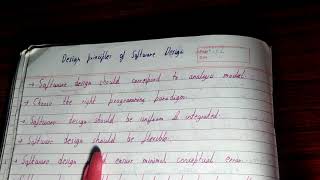 Design principles of Software Design
→ Software design should correspond to analysis model.
→ Choose the right programming paradigm.
→ Software design should be uniform & integrated.
→ Software design should be flexible.
→ Software design ensure minimal conceptual